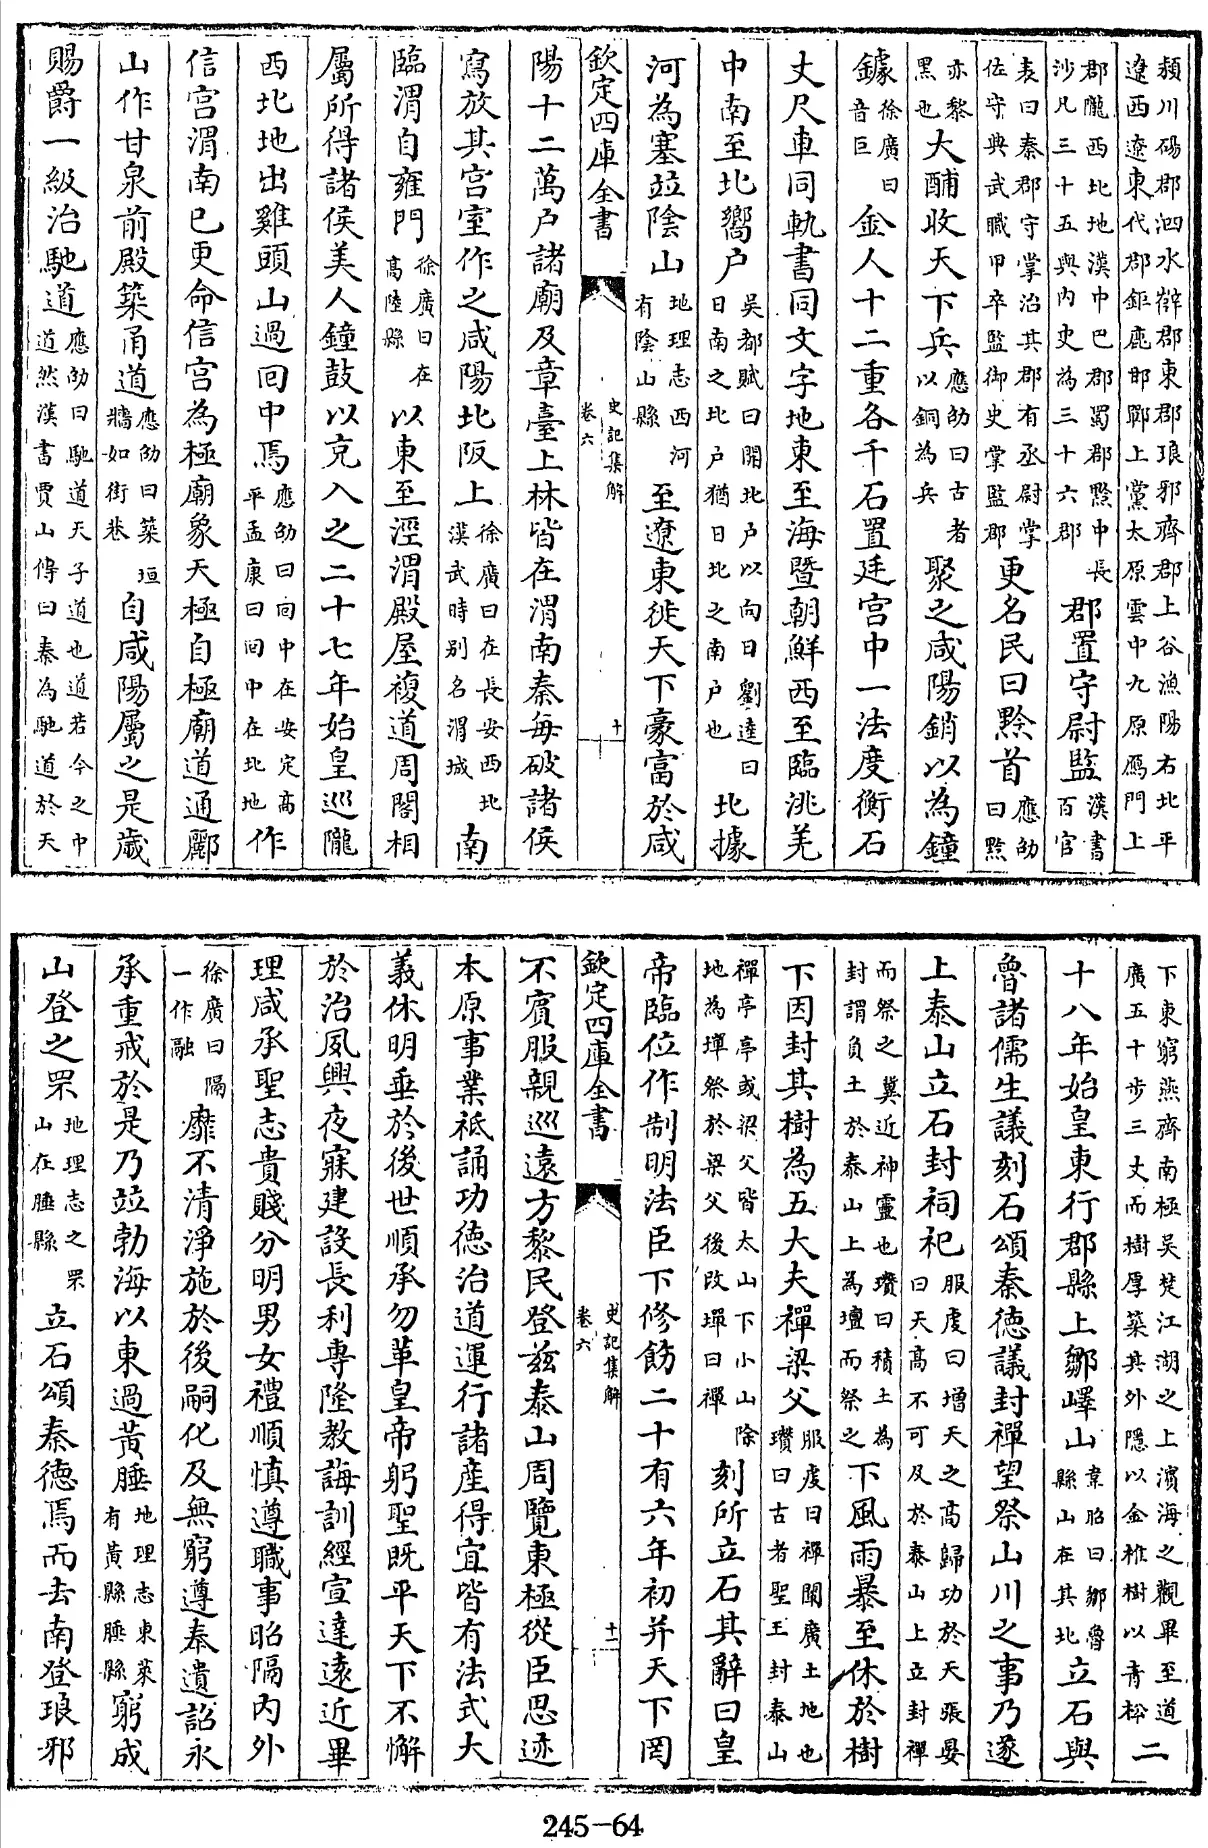 潁川碭郡泗水薛郡東郡琅邪齊郡上谷漁陽右北平遼西遼東代郡鉅鹿邯鄲上黨太原雲中九原鴈門上
郡隴西北地漢中巴郡蜀郡黔中長沙凡三十五與內史為三十六郡郡置守尉監漢書百官
表曰秦郡守掌治其郡有丞尉掌佐守典武職甲卒監御史掌監郡更名民曰黔首應劭曰黔
亦黎黑也大酺收天下兵應劭曰古者以銅為兵聚之咸陽銷以為鐘
鐻徐廣曰音巨金人十二重各千石置廷宮中一法度衡石
丈尺車同軌書同文字地東至海暨朝鮮西至臨洮羌
中南至北嚮户吳都賦曰開北户以向日劉逵曰日南之北户猶日北之南户也北據
河為塞並陰山地理志西河有陰山縣至遼東徙天下豪富於咸
欽定四庫全書 史記集解卷六 十
陽十二萬户諸廟及章臺上林皆在渭南秦每破諸侯
寫放其宮室作之咸陽北阪上徐廣曰在長安西北漢武時别名渭城南
臨渭自雍門徐廣曰在高陸縣以東至涇渭殿屋複道周閣相
屬所得諸侯美人鐘鼓以充入之二十七年始皇巡隴
西北地出雞頭山過回中焉應劭曰回中在安定高平孟康曰回中在北地作
信宮渭南已更命信宮為極廟象天極自極廟道通酈
山作甘泉前殿築甬道應劭曰築垣牆如街巷自咸陽屬之是歲
賜爵一級治馳道應劭曰馳道天子道也道若今之中道然漢書賈山傳曰秦為馳道於天
下東窮燕齊南極吳楚江湖之上濱海之觀畢至道廣五十步三丈而樹厚築其外隱以金椎樹以青松二
十八年始皇東行郡縣上鄒嶧山韋昭曰鄒魯縣山在其北立石與
魯諸儒生議刻石頌秦德議封禪望祭山川之事乃遂
上泰山立石封祠祀服虔曰增天之高歸功於天張晏曰天高不可及於泰山上立封禪
而祭之冀近神靈也瓚曰積土為封謂負土於泰山上為壇而祭之下風雨暴至休於樹
下因封其樹為五大夫禪梁父服虔曰禪闡廣土地也瓚曰古者聖王封泰山
禪亭亭或梁父皆太山下小山除地為墠祭於梁父後改墠曰禪刻所立石其辭曰皇
帝臨位作制明法臣下修飭二十有六年初并天下罔
欽定四庫全書 史記集解卷六 十一
不賓服親巡遠方黎民登茲泰山周覽東極從臣思迹
本原事業祗誦功德治道運行諸產得宜皆有法式大
義休明垂於後世順承勿革皇帝躬聖既平天下不懈
於治夙興夜寐建設長利專隆教誨訓經宣達遠近畢
理咸承聖志貴賤分明男女禮順慎遵職事昭隔內外
徐廣曰隔一作融靡不清淨施於後嗣化及無窮遵奉遺詔永
承重戒於是乃並勃海以東過黃腄地理志東萊有黃縣腄縣窮成
山登之罘地理志之罘山在腄縣立石頌秦德焉而去南登琅邪
245-64